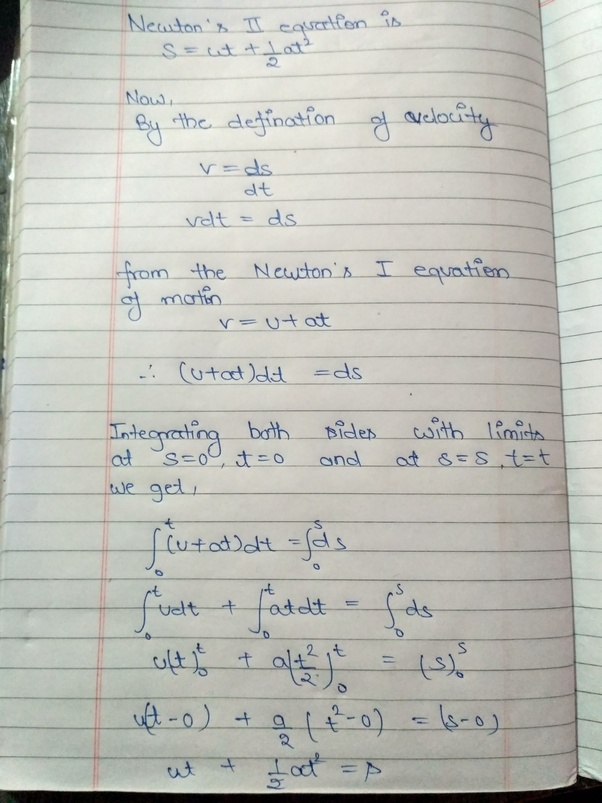 Newton's II equation is
S = ut + 1/2 at²
Now,
By the defination of velocity
v = ds/dt
vdt = ds
from the Newton's I equation
of motin
v = u + at
∴ (u+at)dt = ds
Integrating both sides with limits
at s=0, t=0 and at s=s, t=t
we get,
∫₀ᵗ(u+at)dt = ∫₀ˢds
∫₀ᵗudt + ∫₀ᵗatdt = ∫₀ˢds
u(t)₀ᵗ + a(t²/2)₀ᵗ = (s)₀ˢ
u(t-0) + a/2 (t²-0) = (s-0)
ut + 1/2 at² = s